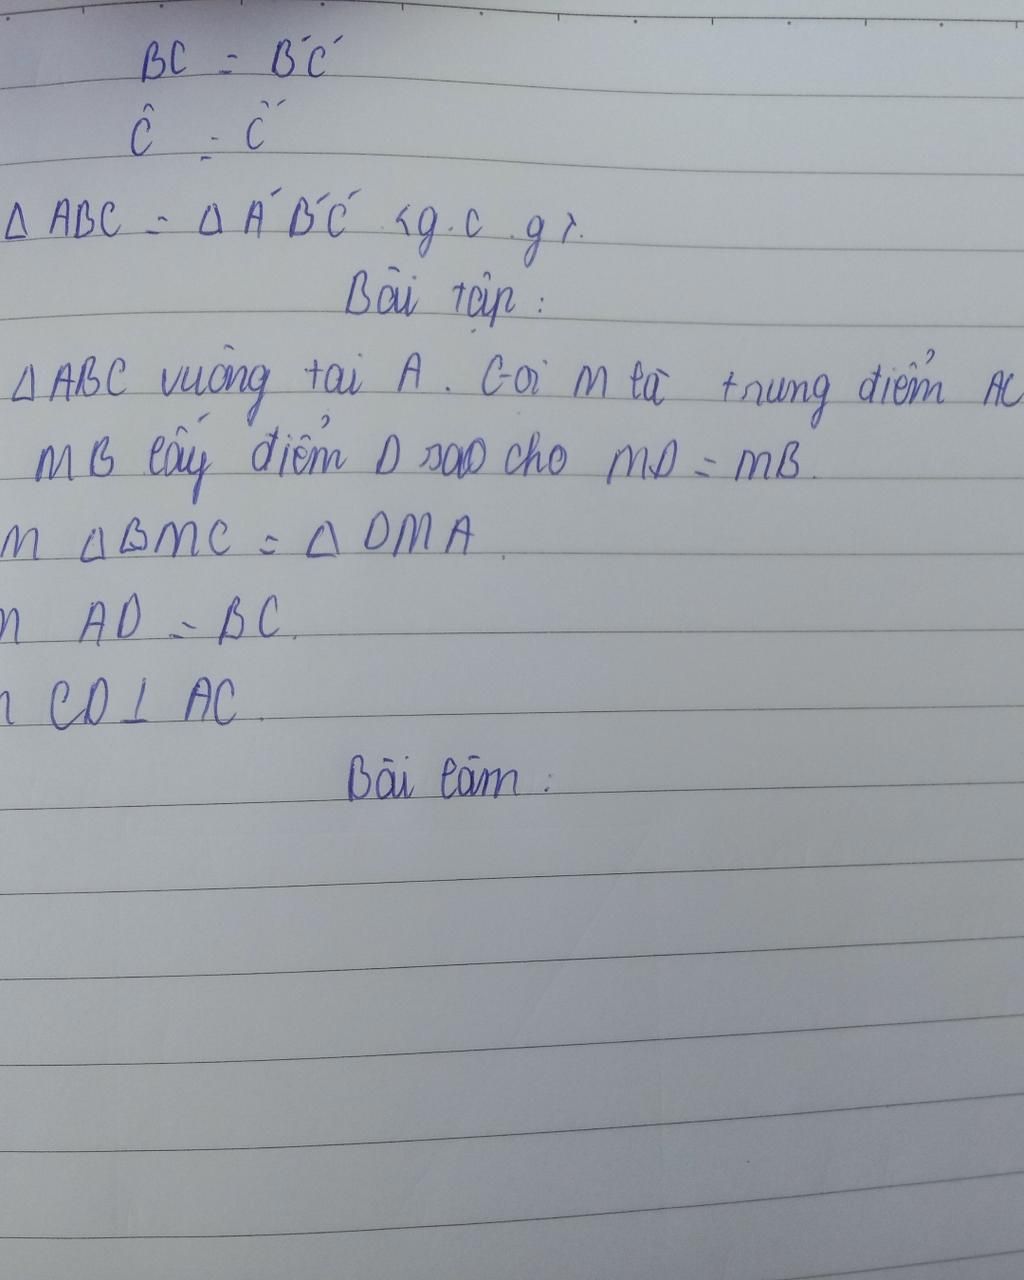 BC = B'C'
Ĉ = Ĉ'
Δ ABC = Δ A'B'C' <g.c.g>.
Bài tập:
Δ ABC vuông tại A. Gọi M là trung điểm AC
MB lấy điểm D sao cho MD = MB.
m Δ BMC = Δ DMA.
AD = BC.
CD ⊥ AC.
Bài làm: